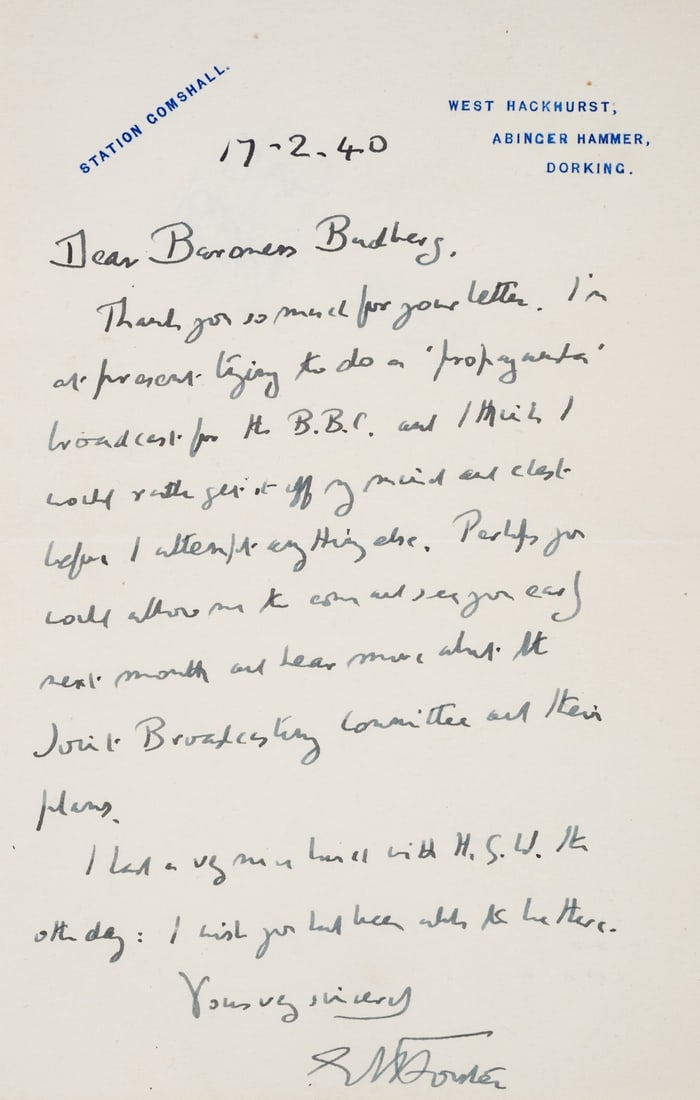 STATION GOMSHALL.
WEST HACKHURST,
ABINGER HAMMER,
DORKING.
17-2-40
Dear Baroness Budberg,
Thank you so much for your letter. I'm
at present trying to do a 'propaganda'
broadcast for the B.B.C. and I think I
would rather get it off my mind and chest
before I attempt anything else. Perhaps you
would allow me to come and see you early
next month and hear more about the
Joint Broadcasting Committee and their
plans.
I had a very nice lunch with H. G. W. the
other day: I wish you had been able to be there.
Yours very sincerely
EM Forster